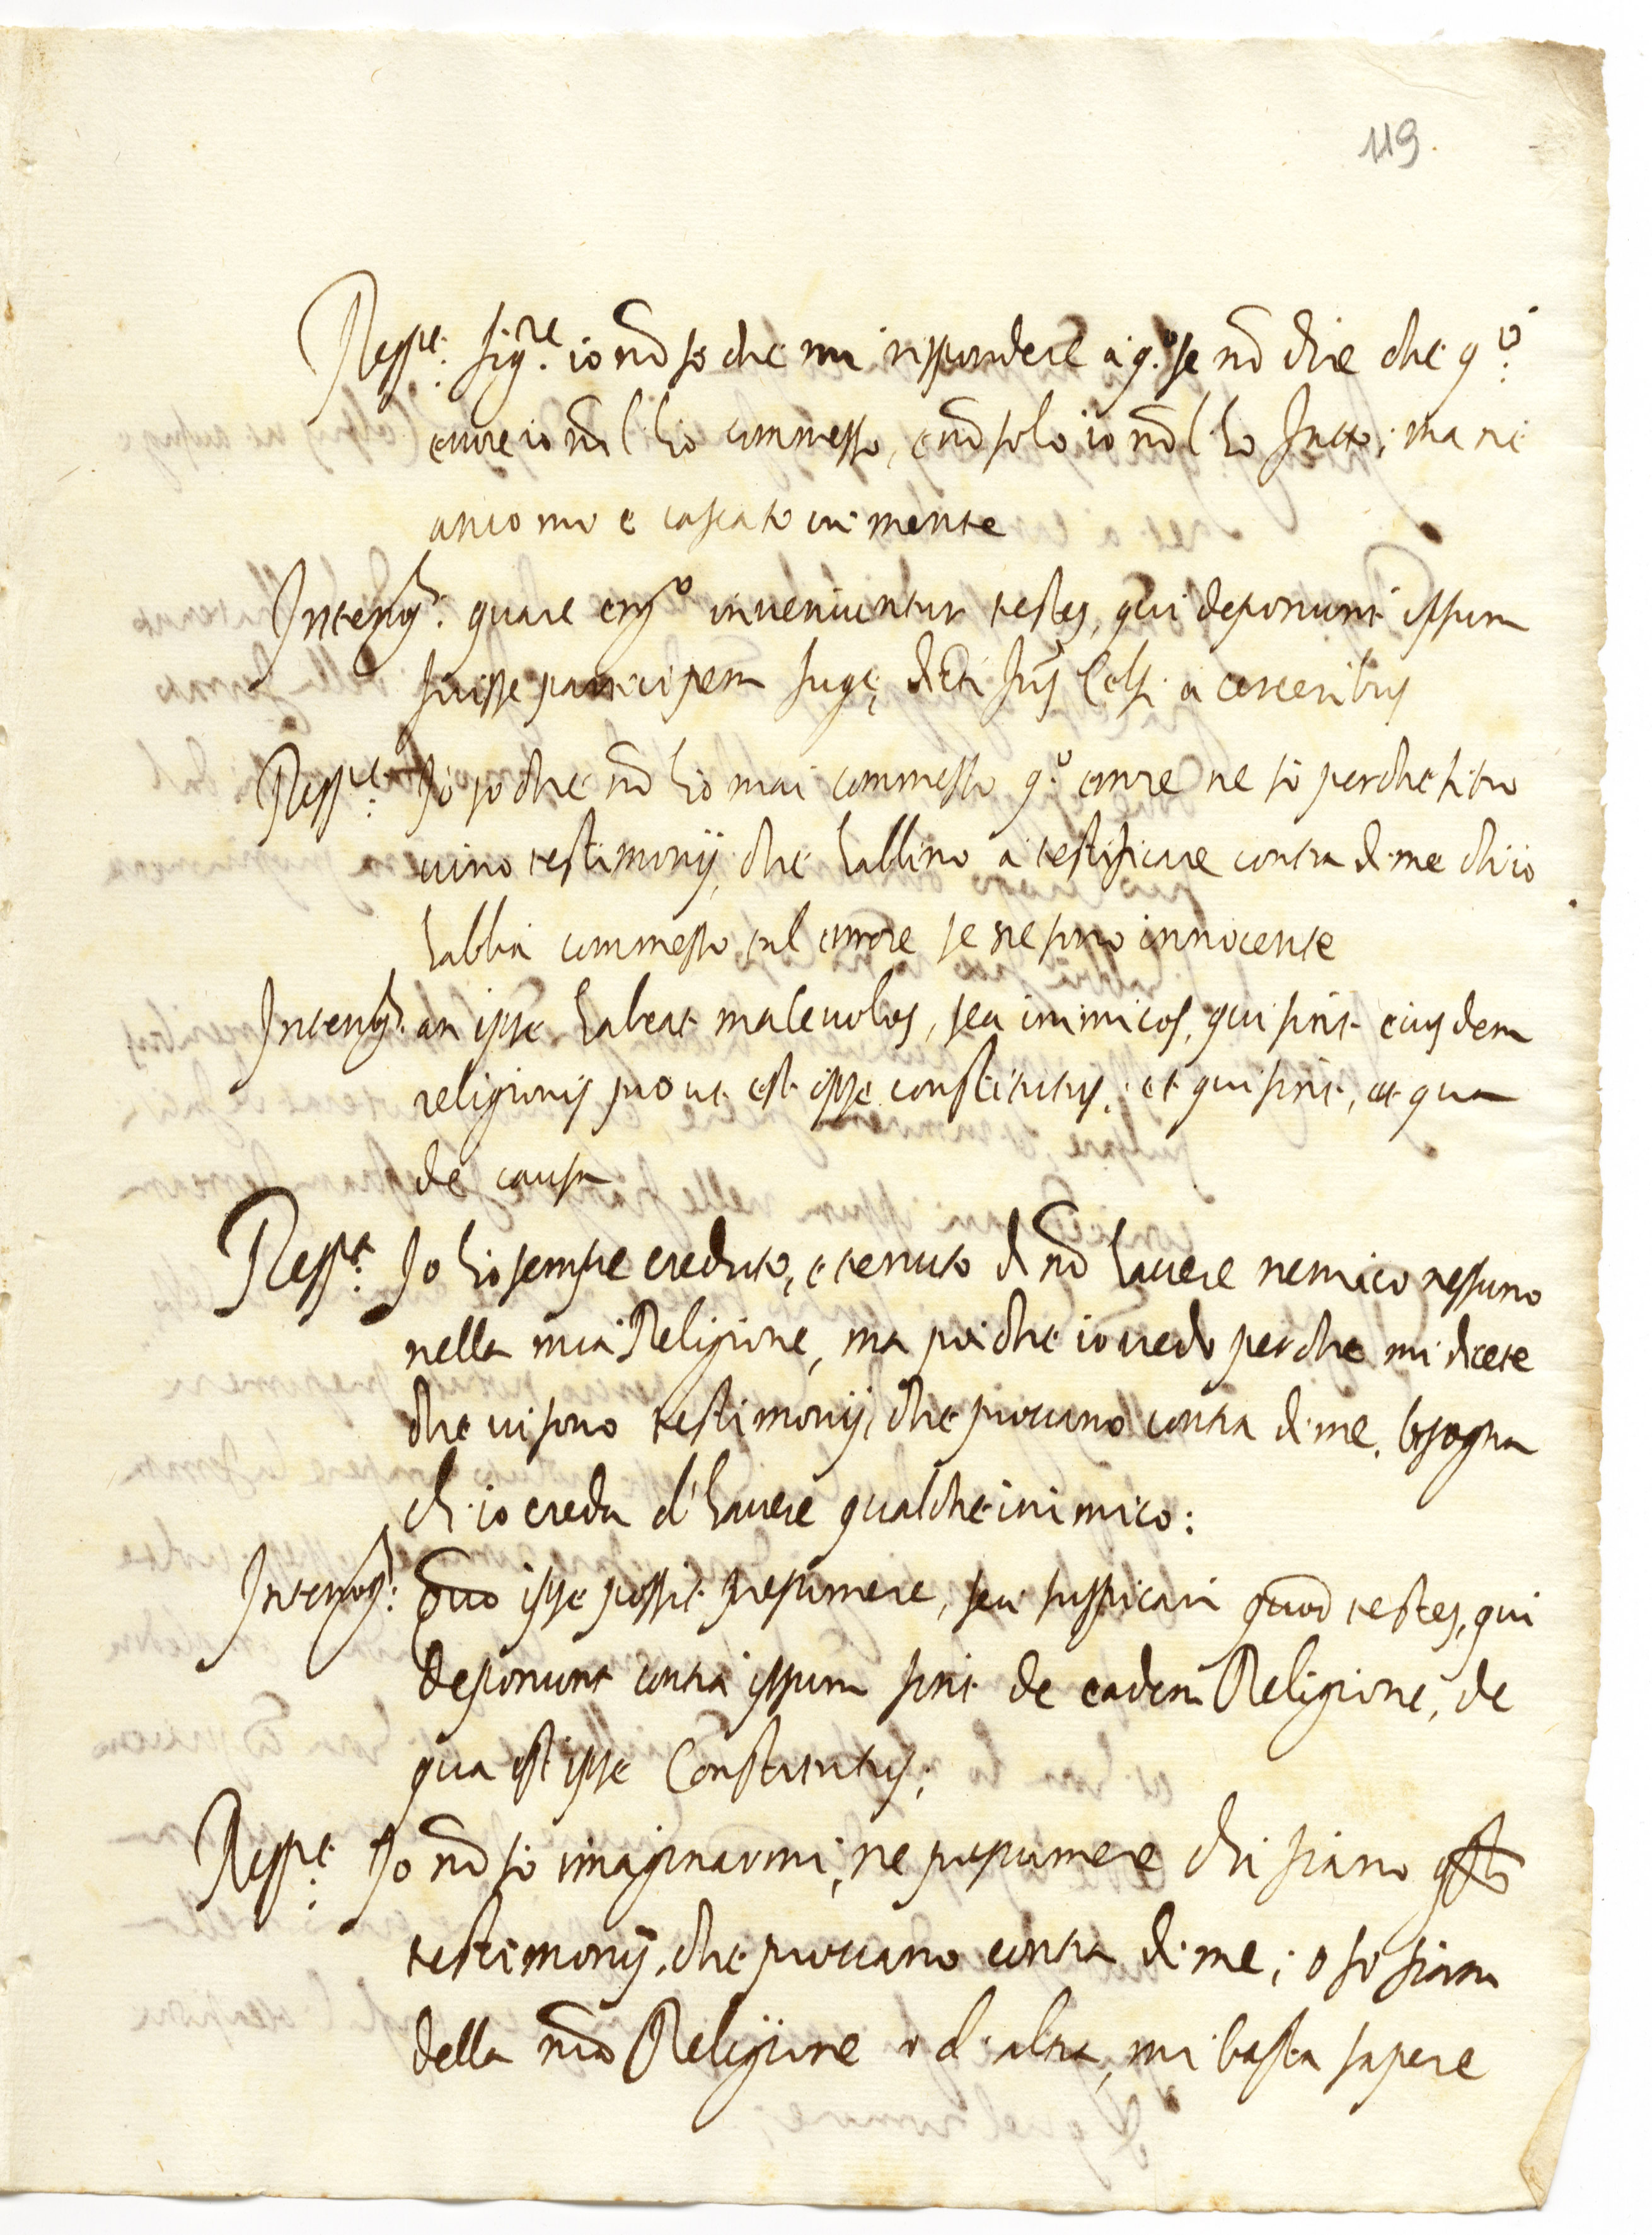 119.
Resp.t Sig.re io nō so che mi rispondere a q.o se nō dire che q.o
errore io nō l'hò commesso, e nō solo io nō l'hò fatto; ma ne
anco mi è cascato in mente
Interrog.s quare ergo inveniuntur testes, qui deponunt ipsum
fuisse participem fugę dicti fr̄is Celsi a carceribus
Resp.t Io so che nō hò mai commesso q.o errore ne sò perche si tro
vino testimonij, che habbino à testificare contra di me ch'io
habbia commesso tal errore se ne sono innocente
Interrog.s an ipse habeat malevolos, seu inimicos, qui sint eiusdem
religionis prout est ipse constitutus, et qui sint, et qua
de causa
Resp.t Io hò sempre creduto, e tenuto di nō havere nemico nessuno
nella mia Religione, ma poi che io vedo perche mi dicete
che vi sono testimonij, che provano contra di me, bisogna
ch'io creda d'havere qualche inimico:
Interrog.s Quo ipse possit presumere, seu suspicari quod testes, qui
deponunt contra ipsum sint de eadem Religione, de
qua est ipse Constitutus;
Resp.t Io nō sò imaginarmi, ne presumere chi siano q.sti
testimonij, che provano contra di me; o se siano
della mia Religione o d'altra, mi basta sapere